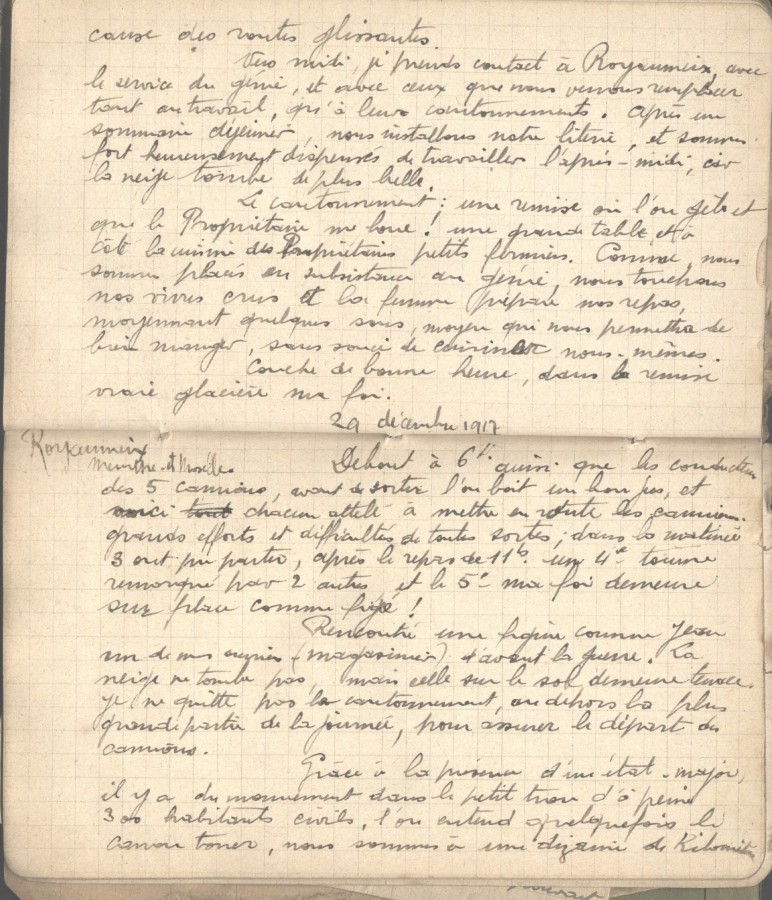 cause des routes glissantes.
Vers midi, je prends contact à Royaumeix, avec
le service du génie, et avec ceux que nous venons remplacer
tant au travail, qu'à leurs cantonnements. Après un
sommaire déjeuner, nous installons notre literie, et sommes
fort heureusement dispensés de travailler l'après-midi, car
la neige tombe de plus belle.
Le cantonnement; une remise où l'on gèle et
que le Propriétaire me loue! une grande table, et à
côté la cuisine des Propriétaires petits fermiers. Comme, nous
sommes placés en subsistance au génie, nous touchons
nos vivres crus, et la femme prépare nos repas,
moyennant quelques sous, moyen qui nous permettra de
bien manger, sans souci de cuisiner nous-mêmes.
Couché de bonne heure, dans la remise
vraie glacière ma foi.
29 décembre 1917
Royaumeix
Meurthe-et-Moselle
Debout à 6h ainsi que les conducteurs
des 5 camions, avant de sortir l'on boit un bon jus, et
voici tout chacun attelé à mettre en route les camions.
grands efforts et difficultés de toutes sortes; dans la matinée
3 ont pu partir, après le repas de 11h. un 4e tourne
remorqué par 2 autres, et le 5e ma foi demeure
sur place comme figé!
Rencontré une figure connue Jean
un de mes ouvriers (magasinier) d'avant la guerre. La
neige ne tombe pas, mais celle sur le sol demeure tenace.
je ne quitte pas le cantonnement, au dehors la plus
grande partie de la journée, pour assurer le départ des
camions.
Grâce à la présence d'un état-major,
il y a du mouvement dans le petit trou d'à peine
300 habitants civils, l'on entend quelquefois le
canon tonner, nous sommes à une dizaine de Kilomètres